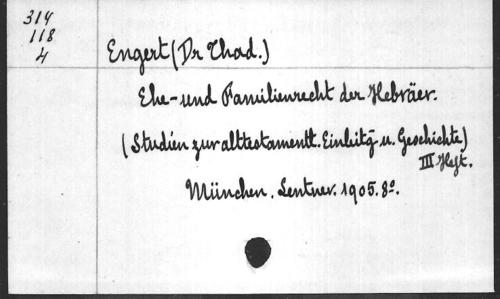 314
118
4
Engert (Dr Thad.)
Ehe- und Familienrecht der Hebräer.
(Studien zur alttestamentl. Einleitg u. Geschichte)
III Heft.
München. Lentner. 1905. 8º.